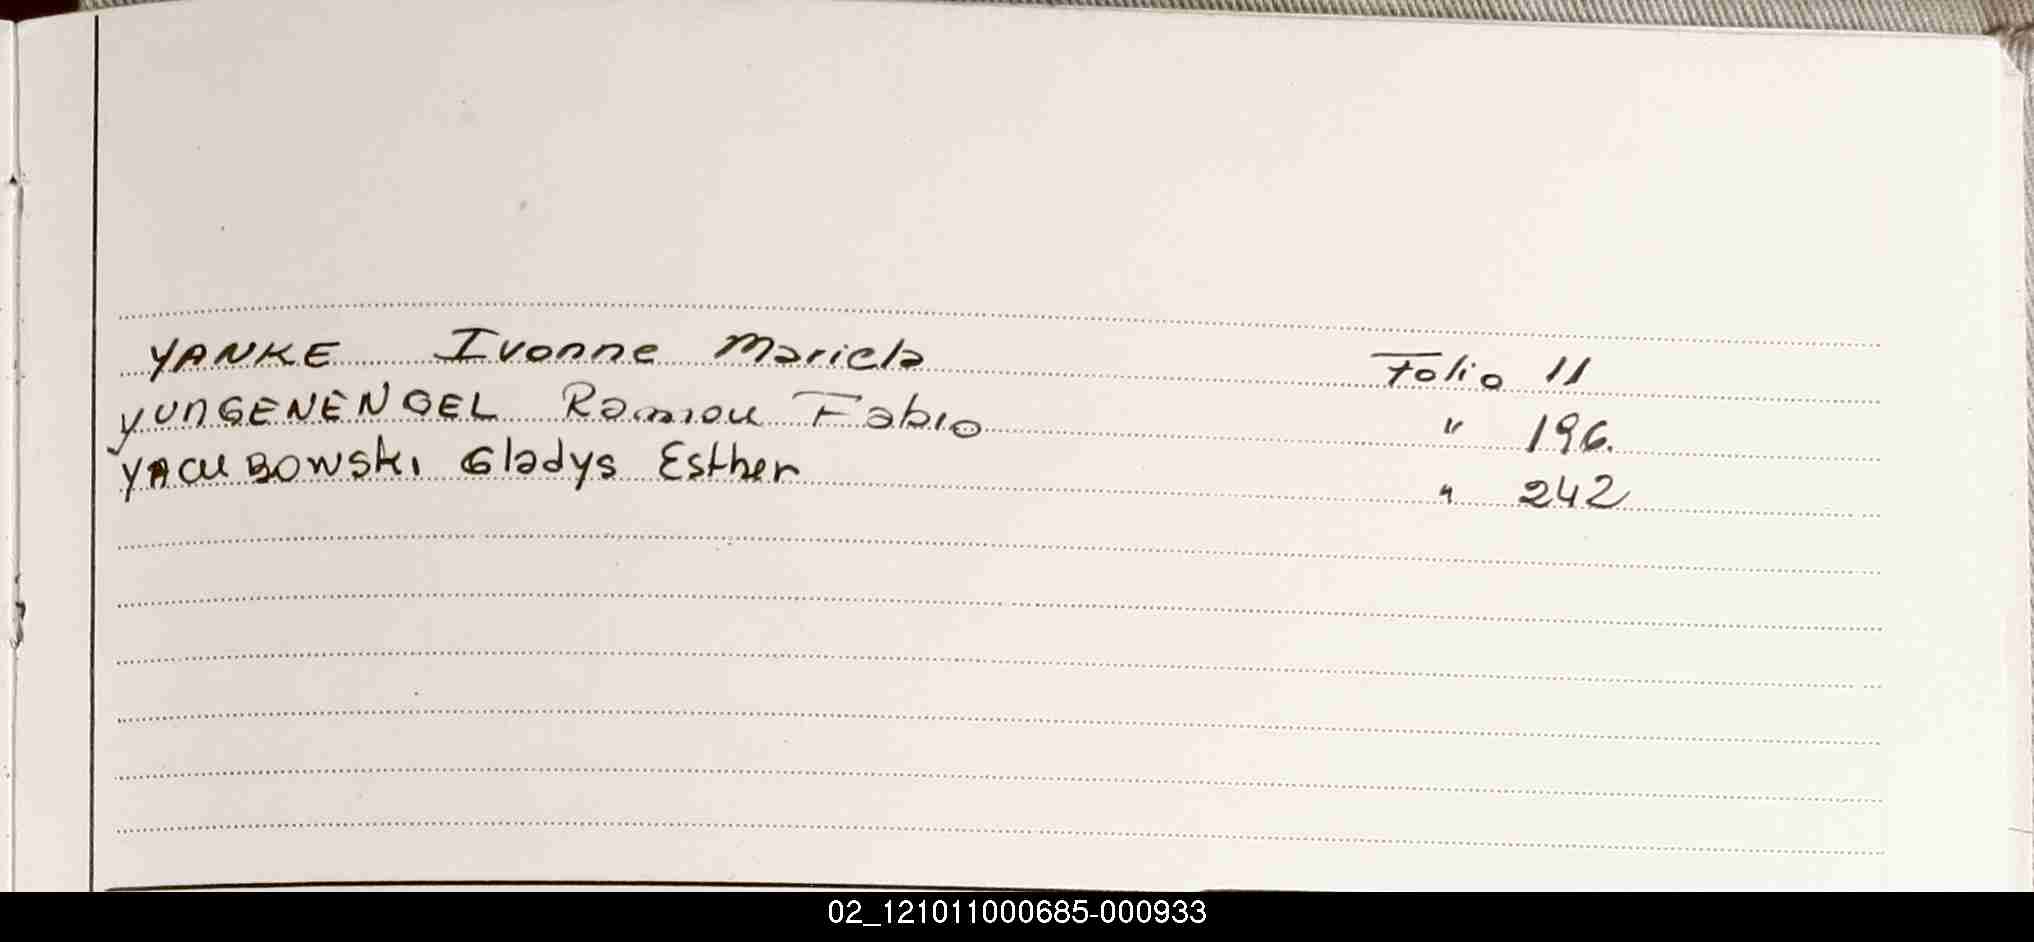 YANKE Ivonne Mariela Folio 11
YUNGENENGEL Ramon Fabio " 196.
YACUBOWSKI Gladys Esther " 242
02_121011000685-000933